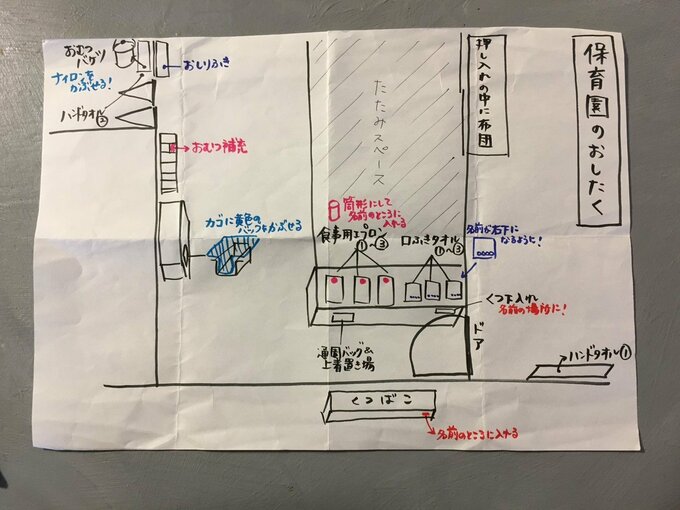 保育園のおしたく
押し入れの中に布団
たたみスペース
おむつ
バケツ
ナイロンを
かぶせる!
ハンドタオル②
おしりふき
おむつ補充
カゴに黄色の
バッグをかぶせる
筒形にして
名前のところに
入れる
食事用エプロン
①〜③
口ふきタオル
①〜③
名前が右下に
なるように!
くつ下入れ
名前の場所に!
通園バッグ&
上着置き場
ドア
ハンドタオル①
くつばこ
名前のところに入れる